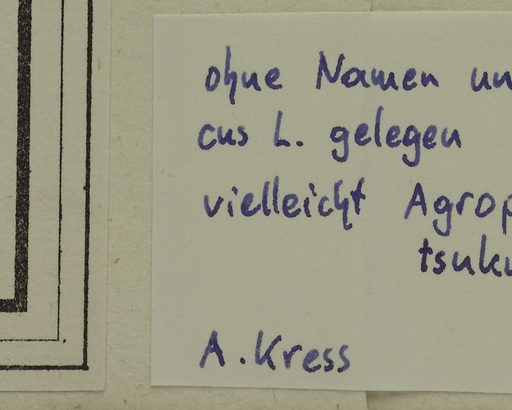 ohne Namen un
cus L. gelegen
vielleicht Agrop
tsuku
A. Kress